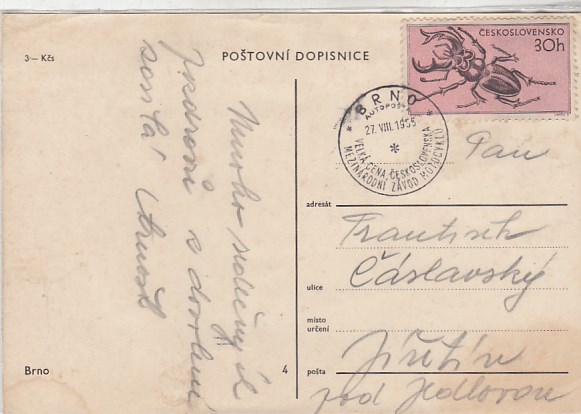 3·— Kčs
POŠTOVNÍ DOPISNICE
ČESKOSLOVENSKO
30h
BRNO
AUTOPOŠTA
27. VIII. 1955
VELKÁ CENA ČESKOSLOVENSKA
MEZINÁRODNÍ ZÁVOD MOTOCYKLŮ
Mnoho srdečných
pozdravů z dovolené
Pan
adresát
František
Čáslavský
ulice
místo
určení
Jiřetín
pošta
pod Jedlovou
Brno
4